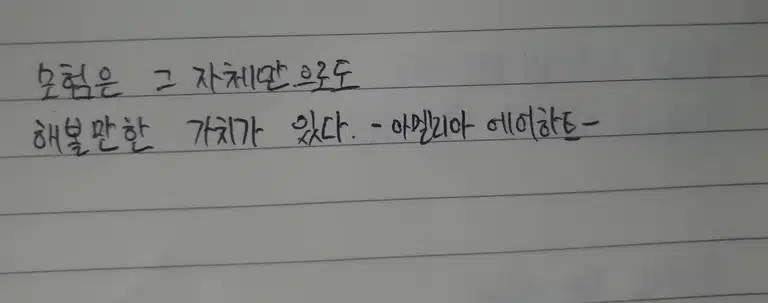 모험은 그 자체만으로도
해볼만한 가치가 있다. -아멜리아 에어하트-